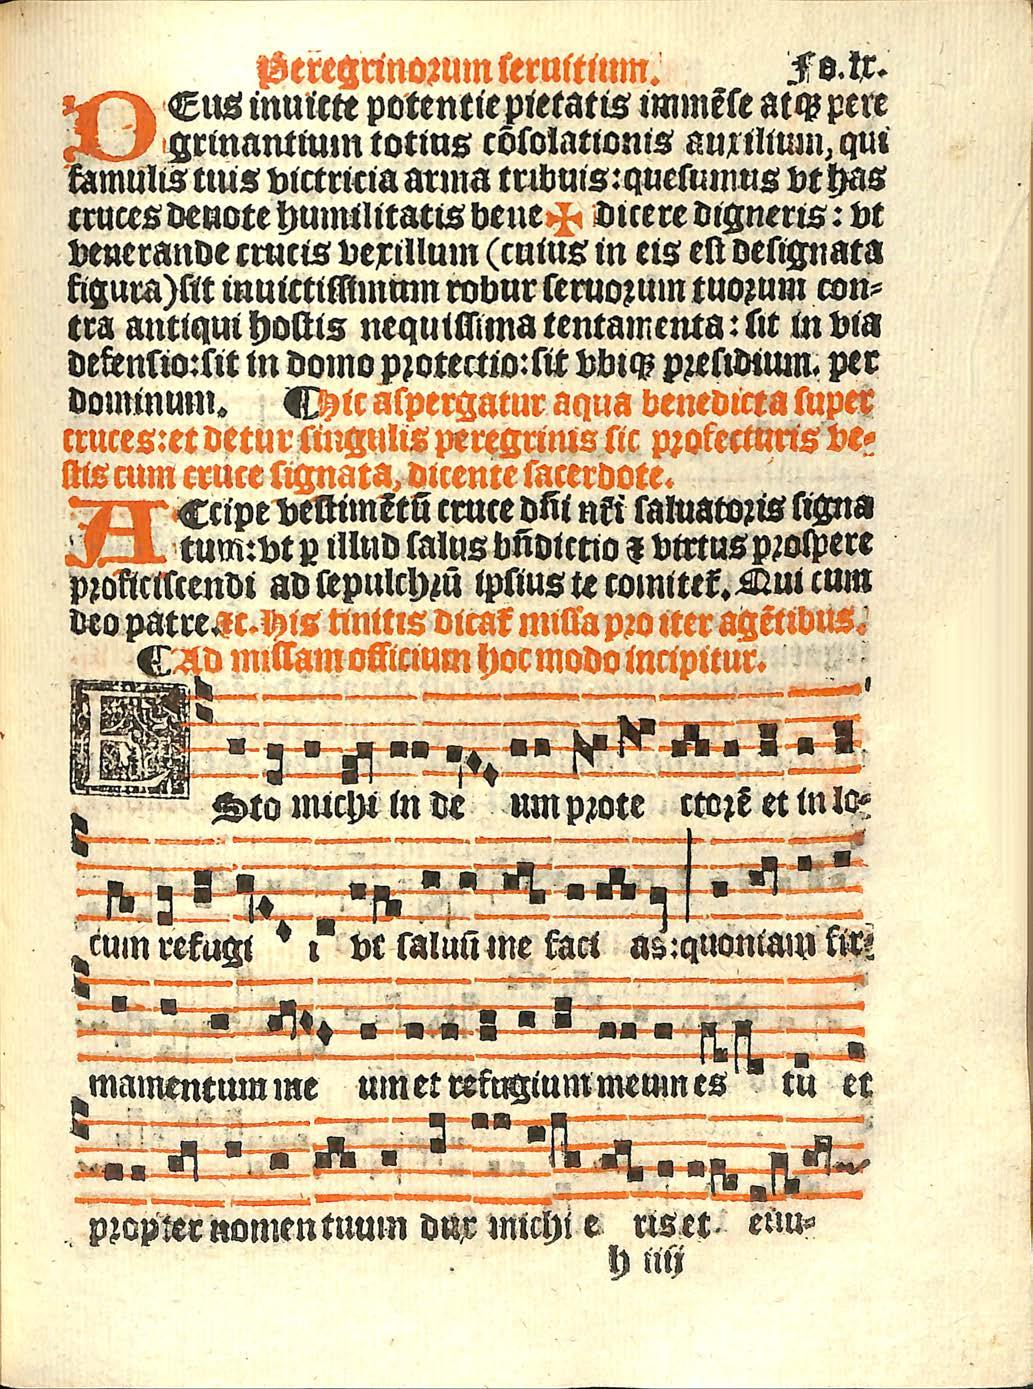 Peregrinorum seruitium. Fo.lx.
DEus inuicte potentie pietatis immēse atqꝫ pere
grinantium totius cōsolationis auxilium, qui
famulis tuis victricia arma tribuis:quesumus vt has
cruces deuote humilitatis bene✠dicere digneris: vt
venerande crucis vexillum (cuius in eis est designata
figura)sit inuictissimum robur seruorum tuorum con-
tra antiqui hostis nequissima tentamenta: sit in via
defensio:sit in domo protectio:sit vbiqꝫ presidium. per
dominum. ¶Hic aspergatur aqua benedicta super
cruces:et detur singulis peregrinis sic profecturis ve-
stis cum cruce signata, dicente sacerdote.
ACcipe vestimētū cruce dn̄i nr̄i saluatoris signa
tum:vt ꝑ illud salus bn̄dictio ⁊ virtus prospere
proficiscendi ad sepulchrū ipsius te comitet᷑. Qui cum
deo patre.⁊c. His finitis dicat᷑ missa pro iter agētibus.
¶Ad missam officium hoc modo incipitur.
ESto michi in de um prote ctorē et in lo-
cum refugi i vt saluū me faci as:quoniam fir-
mamentum me um et refugium meum es tu et
propter nomen tuum dux michi e ris et enu-
h iiij